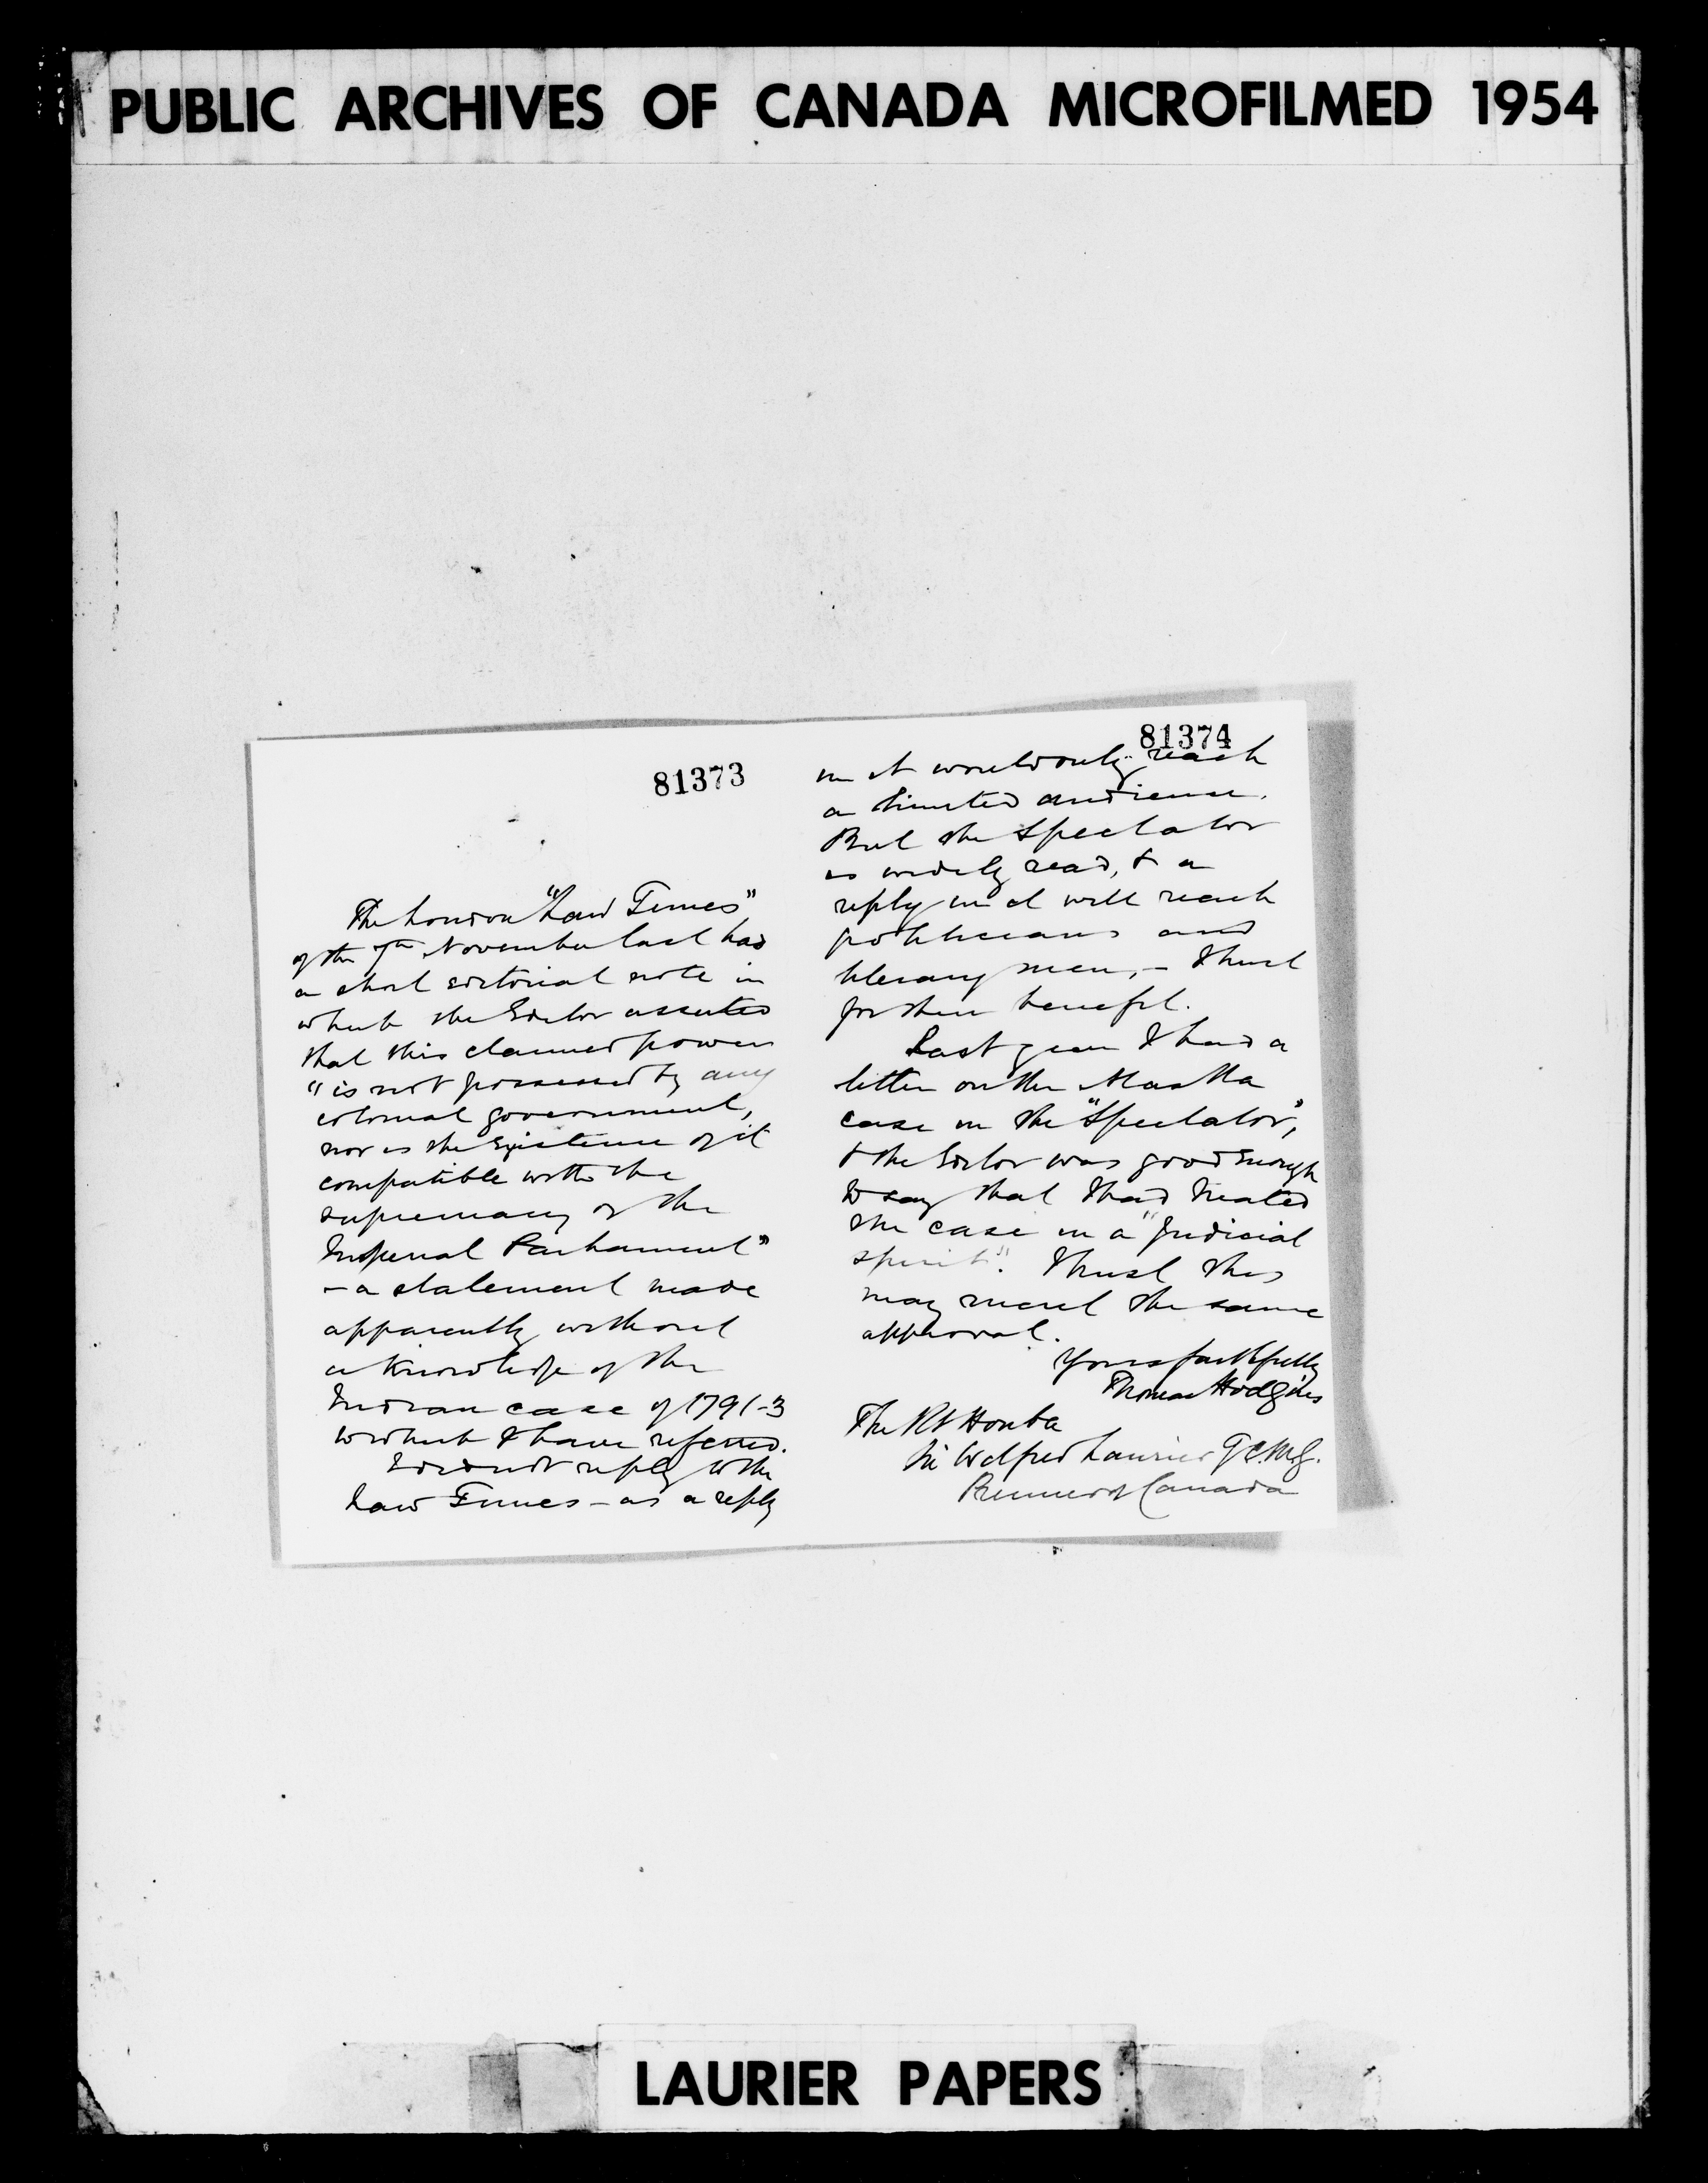 PUBLIC ARCHIVES OF CANADA MICROFILMED 1954
81373
The London "Law Times"
of the 7th November last had
a short editorial note in
which the Editor asserted
that this claimed power
"is not possessed by any
colonial government,
nor is the existence of it
compatible with the
supremacy of the
Imperial Parliament"
- a statement made
apparently without
a knowledge of the
Indian case of 1791-3
to which I have referred.
I do not reply to the
Law Times - as a reply
81374
in it would only reach
a limited audience.
But the Spectator
is widely read, & a
reply in it will reach
politicians and
literary men, - I trust
for their benefit.
Last year I had a
letter on the Alaska
case in the "Spectator",
& the Editor was good enough
to say that I had treated
the case in a "judicial
spirit". I trust this
may merit the same
approval.
Yours faithfully
Thomas Hodgins
The Rt Honble
Sir Wilfred Laurier G.C.M.G.
Premier of Canada
LAURIER PAPERS